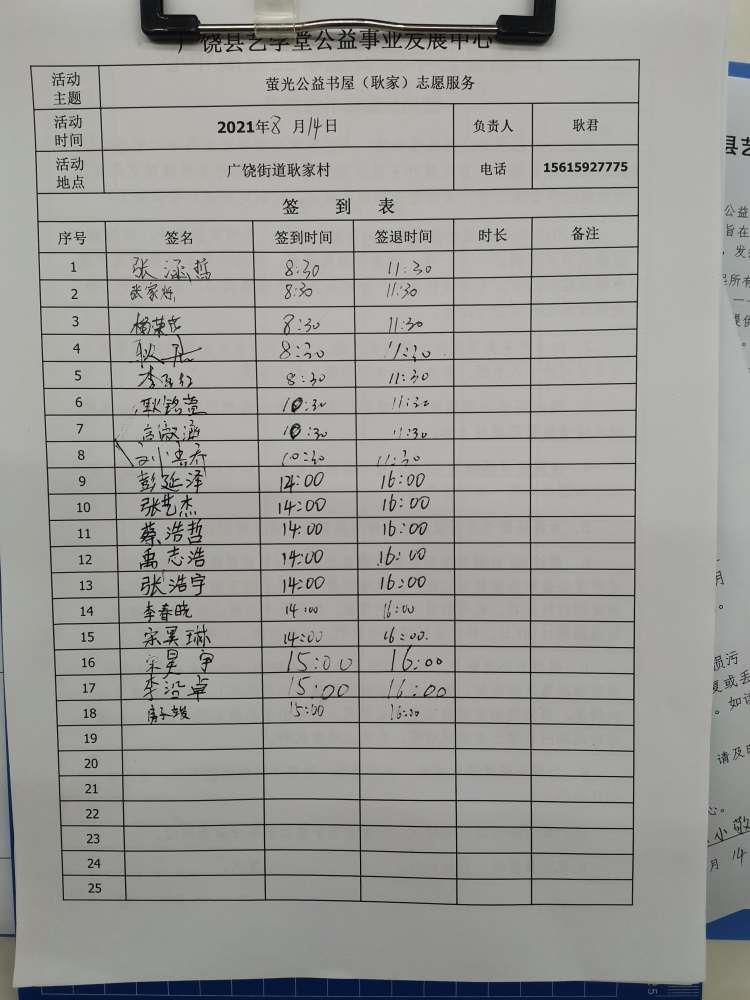 广饶县艺学堂公益事业发展中心
活动主题 萤光公益书屋（耿家）志愿服务
活动时间 2021年8月14日 负责人 耿君
活动地点 广饶街道耿家村 电话 15615927775
签 到 表
序号 签名 签到时间 签退时间 时长 备注
1 张涵哲 8:30 11:30
2 张家 8:30 11:30
3 杨荣 8:30 11:30
4 耿 8:30 11:30
5 李 8:30 11:30
6 耿铭萱 10:30 11:30
7 淑涵 10:30 11:30
8 刘 乔 10:30 11:30
9 彭延泽 14:00 16:00
10 张艺杰 14:00 16:00
11 蔡浩哲 14:00 16:00
12 禹志浩 14:00 16:00
13 张浩宇 14:00 16:00
14 李春晓 14:00 16:00
15 宋昊琳 14:00 16:00
16 宋昊宇 15:00 16:00
17 李沿卓 15:00 16:00
18 15:00 16:00
19
20
21
22
23
24
25
县艺
公益
旨在
，发
所有
损污
复或丢
。如
请及
心。
小敬
月 14